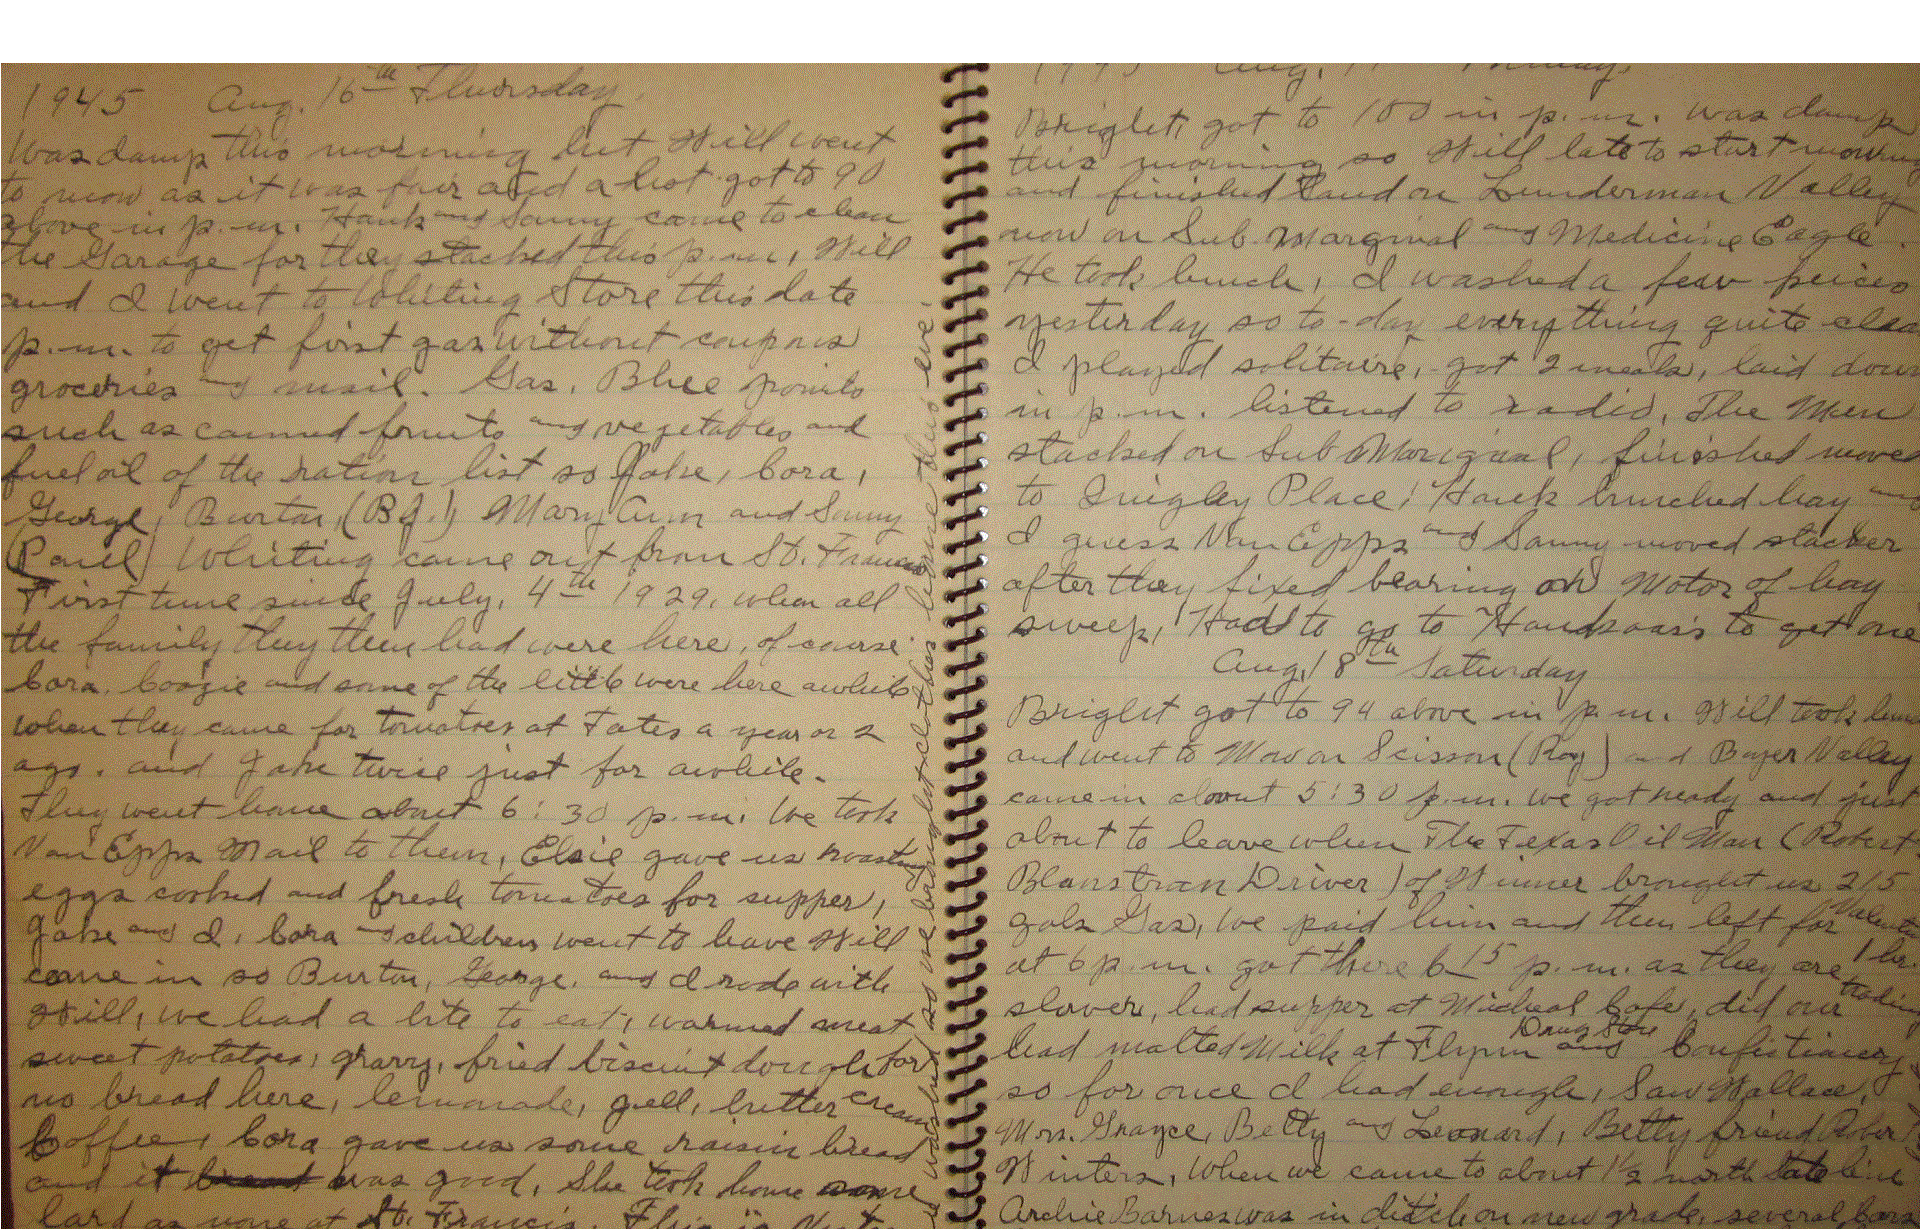 1945 Aug. 16th Thursday.
Was damp this morning but Will went
to mow as it was fair and a hot got to 90
above in p.m. Hank and Sonny came to clean
the Garage for they stacked this p.m., Will
and I went to Whiting Store this date
p.m. to get first gas without coupons
groceries and mail. Gas, Blue points
such as canned fruits and vegetables and
fuel oil of the ration list so Jake, Cora,
George, Burton, (B.J.) Mary Ann and Sonny
(Paul) Whiting came out from St. Francis
First time since July, 4th 1929, when all
the family they then had were here, of course
Cora. Boogie and some of the little were here awhile
when they came for tomatoes at Tates a year or 2
ago. and Jake twice just for awhile.
They went home about 6:30 p.m. We took
Van Epps Mail to them, Elsie gave us roasting
eggs cooked and fresh tomatoes for supper,
Jake and I, Cora and children went to have Will
come in so Burton, George, and I rode with
Will, we had a bite to eat, warmed meat
sweet potatoes, gravy, fried biscuit dough for
no bread here, lemonade, jell, butter cream
Coffee, Cora gave us some raisin bread
and it was good, She took home some
lard as none at St. Francis. This is
1945 Aug. 17 Friday.
Bright, got to 100 in p.m. was damp
this morning so Will late to start mowing
and finished land on Lunderman Valley
now on Sub. Marginal and Medicine Eagle.
He took lunch, I washed a few peices
yesterday so to-day everything quite clean
I played solitaire, got 2 meals, laid down
in p.m. listened to radio, The Men
stacked on Sub Marginal, finished moved
to Quigley Place, Hank bunched hay and
I guess Van Epps and Sonny moved stacker
after they fixed bearing on Motor of hay
sweep, Had to go to to get one
Aug. 18th Saturday
Bright got to 94 above in p.m. Will took lunch
and went to Mow on Scisson (Roy) and Boyer Valley
came in about 5:30 p.m. we got ready and just
about to leave when The Texas Oil Man (Robert
Driver) of Winner brought us 215
gals Gas, we paid him and then left for Valentine
at 6 p.m. got there 6 15 p.m. as they are 1 hr.
slower, had supper at Micheal Cafe, did our trading
had malted Milk at Flynn Drug Store and Confectionery
so for once I had enough, Saw Wallace,
Mrs. Grayce, Betty and Leonard, Betty friend
Winters, When we came to about 1½ north State line
Archie Barnes was in ditch on new grade, several